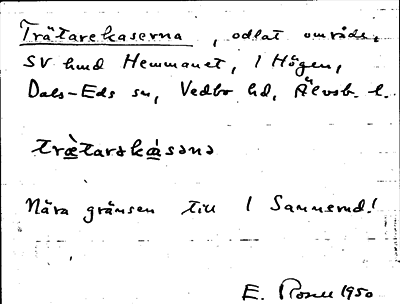 Trätarekaserna, odlat område,
SV hmd Hemmanet, 1 Högen,
Dals-Eds sn, Vedbo hd, Älvsb. l.
træ̀tarəkásənə
Nära gränsen till 1 Sannerud!
E. Rosell 1950